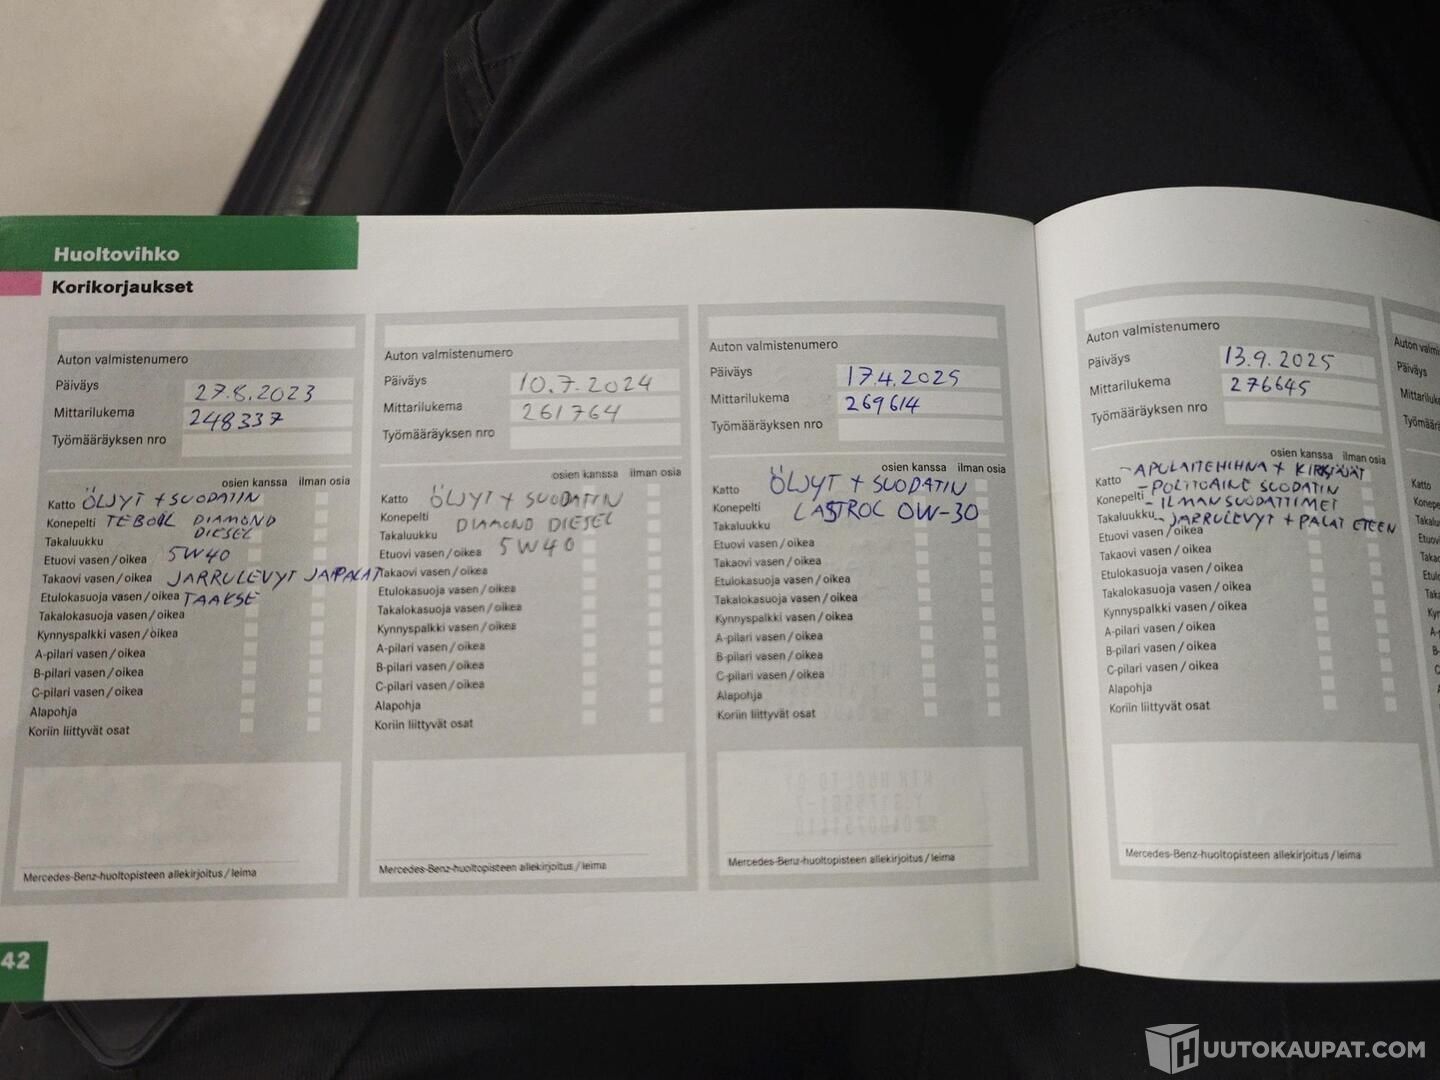 Huoltovihko
Korikorjaukset
Auton valmistenumero
Päiväys 27.8.2023
Mittarilukema 248337
Työmääräyksen nro
osien kanssa ilman osia
Katto ÖLJYT + SUODATIN
Konepelti TEBOIL DIAMOND
Takaluukku DIESEL
Etuovi vasen / oikea 5W40
Takaovi vasen / oikea JARRULEVYT JA PALAT
Etulokasuoja / oikea TAAKSE
Takalokasuoja vasen / oikea
Kynnyspalkki vasen / oikea
A-pilari vasen / oikea
B-pilari vasen / oikea
C-pilari vasen / oikea
Alapohja
Koriin liittyvät osat
Mercedes-Benz-huoltopisteen allekirjoitus / leima
42
Auton valmistenumero
Päiväys 10.7.2024
Mittarilukema 261764
Työmääräyksen nro
osien kanssa ilman osia
Katto ÖLJYT + SUODATIN
Konepelti DIAMOND DIESEL
Takaluukku
Etuovi vasen / oikea 5W40
Takaovi vasen / oikea
Etulokasuoja vasen / oikea
Takalokasuoja vasen / oikea
Kynnyspalkki vasen / oikea
A-pilari vasen / oikea
B-pilari vasen / oikea
C-pilari vasen / oikea
Alapohja
Koriin liittyvät osat
Mercedes-Benz-huoltopisteen allekirjoitus / leima
Auton valmistenumero
Päiväys 17.4.2025
Mittarilukema 269614
Työmääräyksen nro
osien kanssa ilman osia
Katto ÖLJYT + SUODATIN
Konepelti CASTROL 0W-30
Takaluukku
Etuovi vasen / oikea
Takaovi vasen / oikea
Etulokasuoja vasen / oikea
Takalokasuoja vasen / oikea
Kynnyspalkki vasen / oikea
A-pilari vasen / oikea
B-pilari vasen / oikea
C-pilari vasen / oikea
Alapohja
Koriin liittyvät osat
Mercedes-Benz-huoltopisteen allekirjoitus / leima
Auton valmistenumero
Päiväys 13.9.2025
Mittarilukema 276645
Työmääräyksen nro
osien kanssa ilman osia
Katto - APULAITEHIHNA + KIRISTÄJÄT
Konepelti - POLTTOAINE SUODATIN
- ILMANSUODATTIMET
Takaluukku - JARRULEVYT + PALAT ETEEN
Etuovi vasen / oikea
Takaovi vasen / oikea
Etulokasuoja vasen / oikea
Takalokasuoja vasen / oikea
Kynnyspalkki vasen / oikea
A-pilari vasen / oikea
B-pilari vasen / oikea
C-pilari vasen / oikea
Alapohja
Koriin liittyvät osat
Mercedes-Benz-huoltopisteen allekirjoitus / leima
Päiväys
Katto
HUUTOKAUPAT.COM